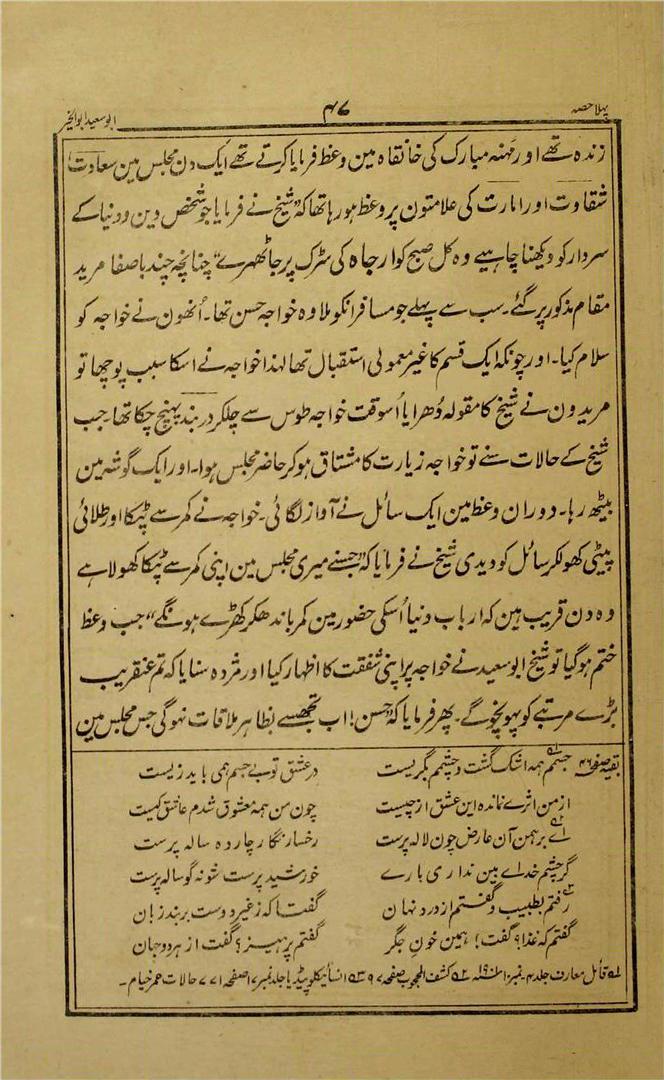 پہلا حصہ
۴۷
ابو سعید ابو الخیر
زندہ تھے اور مہنہ مبارک کی خانقاہ مین وعظ فرمایا کرتے تھے ایک دن مجلس مین سعادت
شقاوت اور امارت کی علامتون پر وعظ ہو رہا تھا کہ شیخ نے فرمایا "جو شخص دین و دنیا کے
سردار کو دیکھنا چاہے وہ کل صبح کو ارجاہ کی سڑک پر جا ٹھہرے" چنانچہ چند باصفا مرید
مقام مذکور پر گئے۔ سب سے پہلے جو مسافر انکو ملا وہ خواجہ حسن تھا۔ اُنھون نے خواجہ کو
سلام کیا۔ اور چونکہ ایک قسم کا غیر معمولی استقبال تھا لہذا خواجہ نے اسکا سبب پوچھا تو
مریدون نے شیخ کا مقولہ دُھرایا اُسوقت خواجہ طوس سے چلکر دربند پہنچ چکا تھا۔ جب
شیخ کے حالات سنے تو خواجہ زیارت کا مشتاق ہو کر حاضر مجلس ہوا۔ اور ایک گوشہ مین
بیٹھ رہا۔ دوران وعظ مین ایک سائل نے آواز لگائی۔ خواجہ نے کمر سے ٹپکا اور طلائی
پیٹی کھولکر سائل کو دیدی شیخ نے فرمایا کہ "جسنے میری مجلس مین اپنی کمر سے ٹپکا کھولا ہے
وہ دن قریب ہین کہ ارباب دنیا اُسکی حضور مین کمر باندھکر کھڑے ہونگے" جب وعظ
ختم ہو گیا تو شیخ ابو سعید نے خواجہ پر اپنی شفقت کا اظہار کیا اور مژدہ سنایا کہ تم عنقریب
بڑے مرتبے کو پہونچو گے۔ پھر فرمایا کہ "حسن! اب تجھسے بظاہر ملاقات نہوگی جس مجلس مین
بقیہ صفحہ ۴۶ جسمم ہمہ اشک گشت و چشمم بگریست در عشق تو بے جسم ہمی باید زیست
از من اثرے نماندہ این عشق از چیست چون من ہمہ معشوق شدم عاشق کیست
اے برہمن آن عارض چون لالہ پرست رخسار نگار چاردہ سالہ پرست
گر چشم خداے بین نداری بارے خورشید پرست شو نہ گوسالہ پرست
رفتم بطبیب و گفتم از درد نہان گفتا کہ ز غیر دوست بربند زبان
گفتم کہ غذا؟ گفت! ہمین خون جگر گفتم پرہیز؟ گفت از ہر دو جہان
فائل معارف جلد ۴۔ نمبر ۱۰ کشف المحجوب صفحہ انسائیکلوپیڈیا جلد نمبر ۱۷ صفحہ ۷۷۱ حالات عمر خیام۔